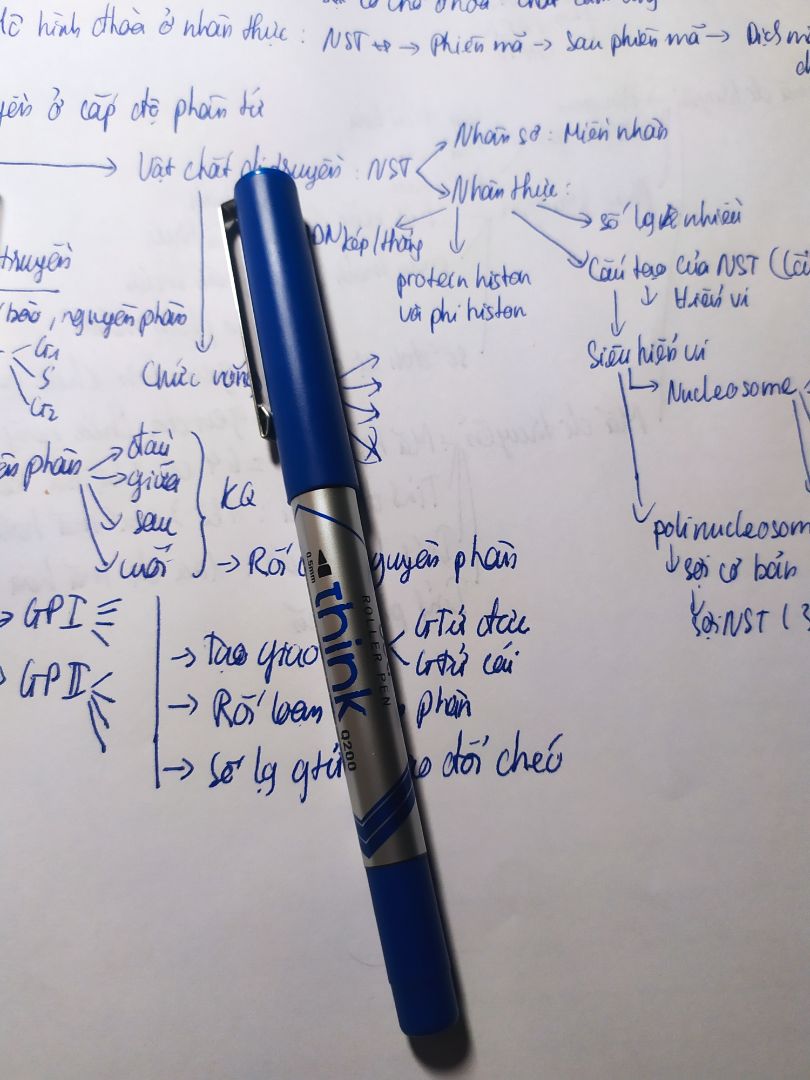 hình đhoà ở nhân thực : NST → Phiên mã → Sau phiên mã → Dịch
ở cấp độ phân tử
→ Vật chất truyền : NST
Nhân sơ : Miền nhân
Nhân thực :
kép/thẳng
protein histon
và phi histon
số lg nhiều
Cấu tạo của NST
↓ Hiển vi
Siêu hiển vi
→ Nucleosome
polinucleosom
↓ sợi cơ bản
sợi NST
truyền
bào, nguyên phân
G1
S
G2
Chức năng
phân
đầu
giữa
sau
cuối
KQ
→ Rối guyên phân
GPI
GPII
→ Tạo giao
Gtử đực
Gtử cái
→ Rối loạn phân
→ Số lg gtử đổi chéo
0.5mm
think
ROLLER PEN
Q200